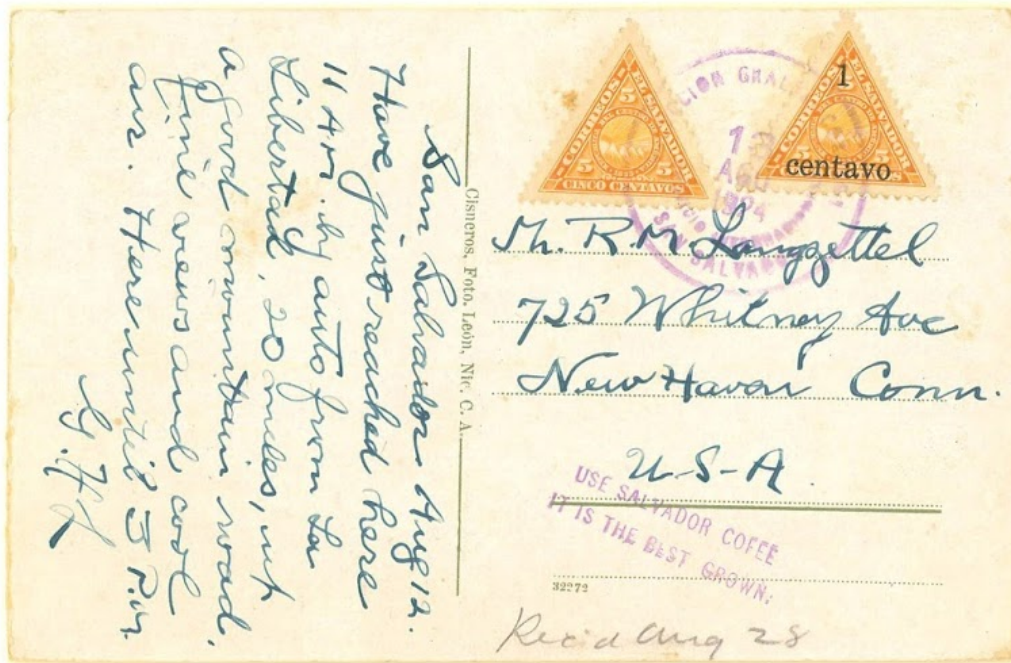 San Salvador Aug 12.
Have just reached here
11 AM. by auto from La
Libertad, 20 miles, up
a good mountain road.
Fine views and cool
air. Here until 3 P.M.
G.F.L
Cisneros, Foto. León, Nic. C. A.
CORREOS EL SALVADOR
5
5 5
CINCO CENTAVOS
CORREOS EL SALVADOR
1
centavo
SAN SALVADOR
Mr. R. M. Langzettel
725 Whitney Ave
New Haven Conn.
U-S-A
USE SALVADOR COFEE
IT IS THE BEST GROWN.
32272
Rec'd Aug 28